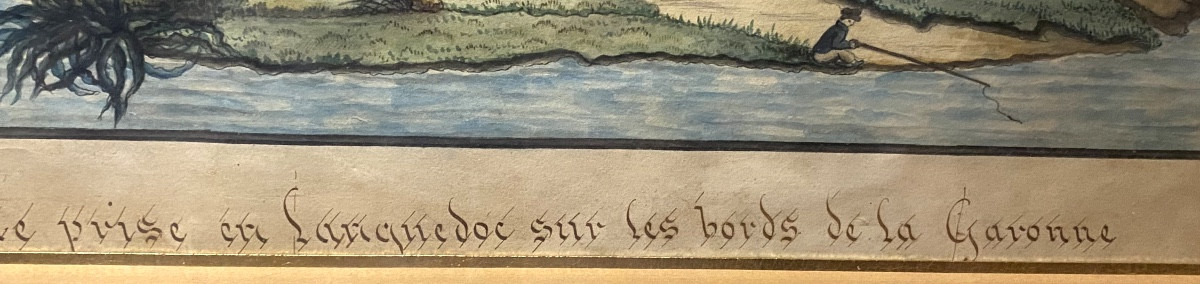 prise en Languedoc sur les bords de la Garonne